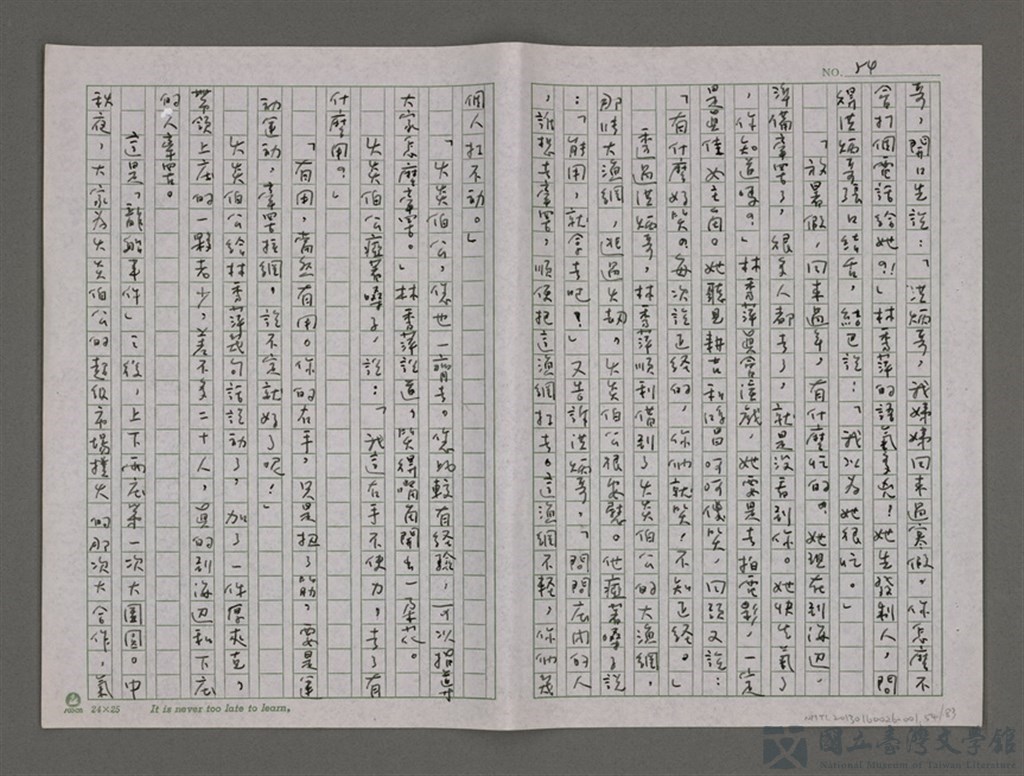 NO. 54
哥，開口生說：「洪炳哥，我姊姊回來過寒假。你怎麼不
會打個電話給她？！」林秀萍的語氣多兇！她先發制人，問
得洪炳哥張口結舌，結巴說：「我以為她很忙。」
「放暑假，回來過年，有什麼忙的？她現在到海邊，
準備牽罟了，很多人都去了，就是沒看到你。她快生氣了
，你知道嗎？」林秀萍真會演戲，她要是去拍電影，一定
是最佳女主角。她聽見耕古和鴻昌呵呵傻笑，回頭又說：
「有什麼好笑？每次說正經的，你們就笑！不知正經。」
透過洪炳哥，林秀萍順利借到了火炎伯公的大漁網，
那時大漁網，逃過火劫，火炎伯公很安慰。他瘂著嗓子說
：「能用，就拿去吧！」又告訴洪炳哥，「問問庄內的人
，誰想去牽罟，順便把這漁網扛去。這漁網不輕，你們幾
個人扛不動。」
「火炎伯公，您也一齊去。您比較有經驗，可以指導
大家怎麼牽罟。」林秀萍說道，笑得嘴角開出一朵花。
火炎伯公瘂著嗓子，說：「我這右手不便力，去了有
什麼用？」
「有用，當然有用。你的右手，只是扭了筋，要是運
動運動，牽罟拉網，說不定就好了呢！」
火炎伯公給林秀萍幾句話說動了，加了一件厚夾克，
帶領上庄的一夥老少，差不多二十人，真的到海邊和下庄
的人牽罟。
這是「龍船事件」之後，上下兩庄第一次大團圓。中
秋夜，大家為火炎伯公的超級市場撲火的那次大合作，氣
24×25 It is never too late to learn.
NMTL20130160026-001, 54/83
國立臺灣文學館
National Museum of Taiwan Literature